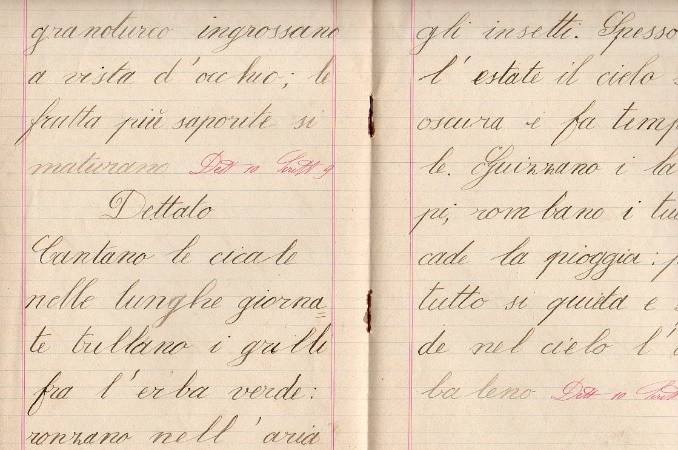 granoturco ingrossano
a vista d'occhio; le
frutta più saporite si
maturano Dett 10 Scritt 9
Dettato
Cantano le cicale
nelle lunghe giorna=
te trillano i grilli
fra l'erba verde:
ronzano nell'aria
gli insetti. Spesso
l'estate il cielo
oscura e fa temp
le. Guizzano i la
pi, rombano i tu
cade la pioggia: p
tutto si quieta e
de nel cielo l'a
baleno Dett 10 Scritt